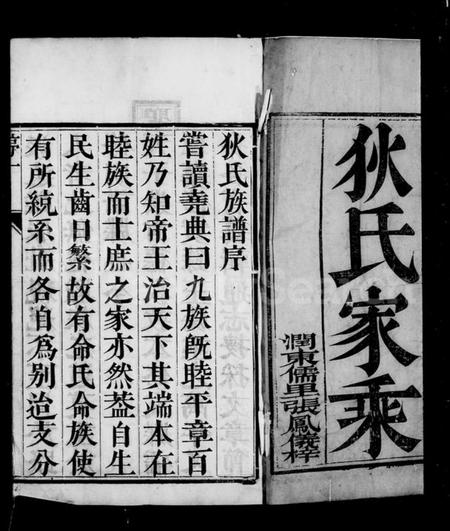 狄氏家乘
潤東儒里張鳳儀梓
狄氏族譜序
嘗讀堯典曰九族旣睦平章百
姓乃知帝王治天下其端本在
睦族而士庶之家亦然葢自生
民生齒日繁故有命氏命族使
有所統系而各自爲别迨支分